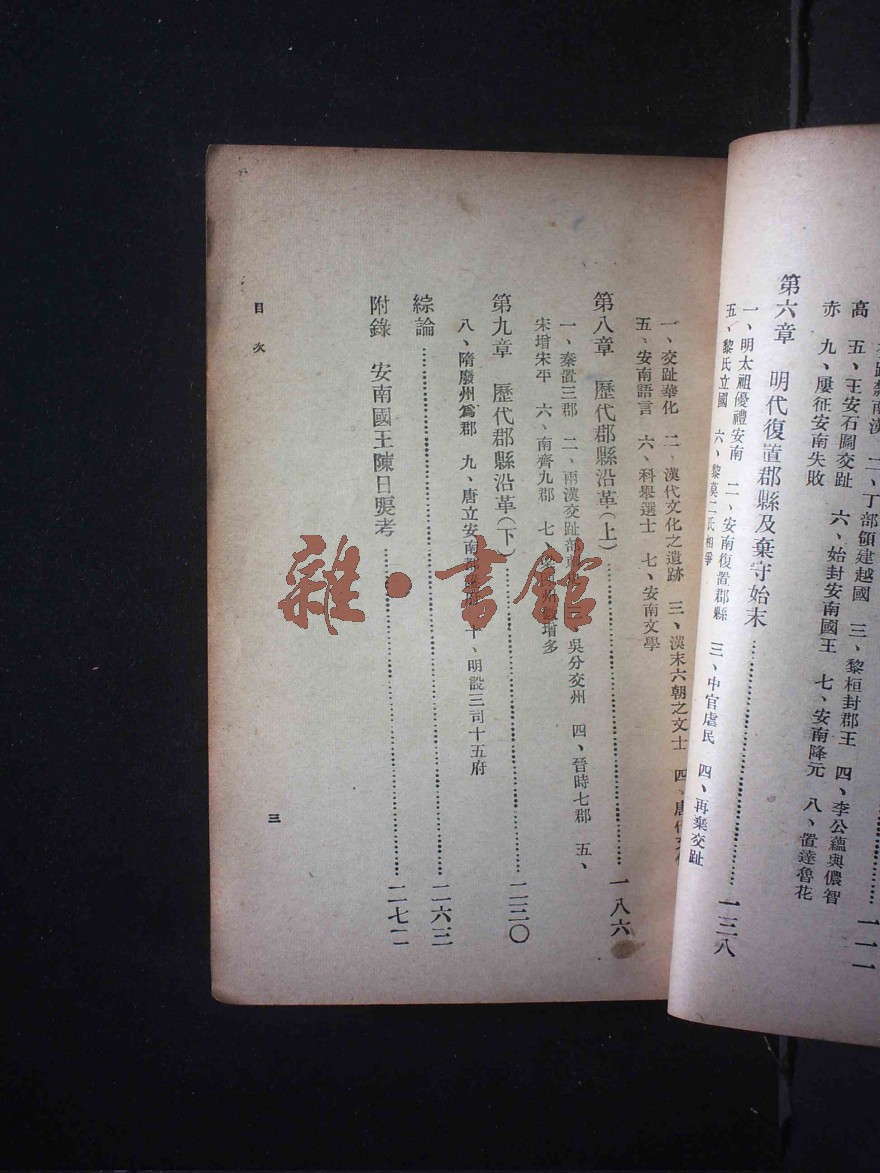 交趾隸南漢 二、丁部領建越國 三、黎桓封郡王 四、李公蘊與儂智
高 五、王安石圖交趾 六、始封安南國王 七、安南降元 八、置達魯花
赤 九、屢征安南失敗
一一一
第六章 明代復置郡縣及棄守始末……一三八
一、明太祖優禮安南 二、安南復置郡縣 三、中官虐民 四、再棄交趾
五、黎氏立國 六、黎莫二氏相爭
一、交趾華化 二、漢代文化之遺跡 三、漢末六朝之文士 四、唐代文化
五、安南語言 六、科舉選士 七、安南文學
第八章 歷代郡縣沿革(上)……一八六
一、秦置三郡 二、兩漢交趾部 吳分交州 四、晉時七郡 五、
宋增宋平 六、南齊九郡 七、增多
第九章 歷代郡縣沿革(下)……二三〇
八、隋廢州爲郡 九、唐立安南都護府 十、明設三司十五府
綜論……二六三
附錄 安南國王陳日煚考……二七二
目次
三
雜·書館